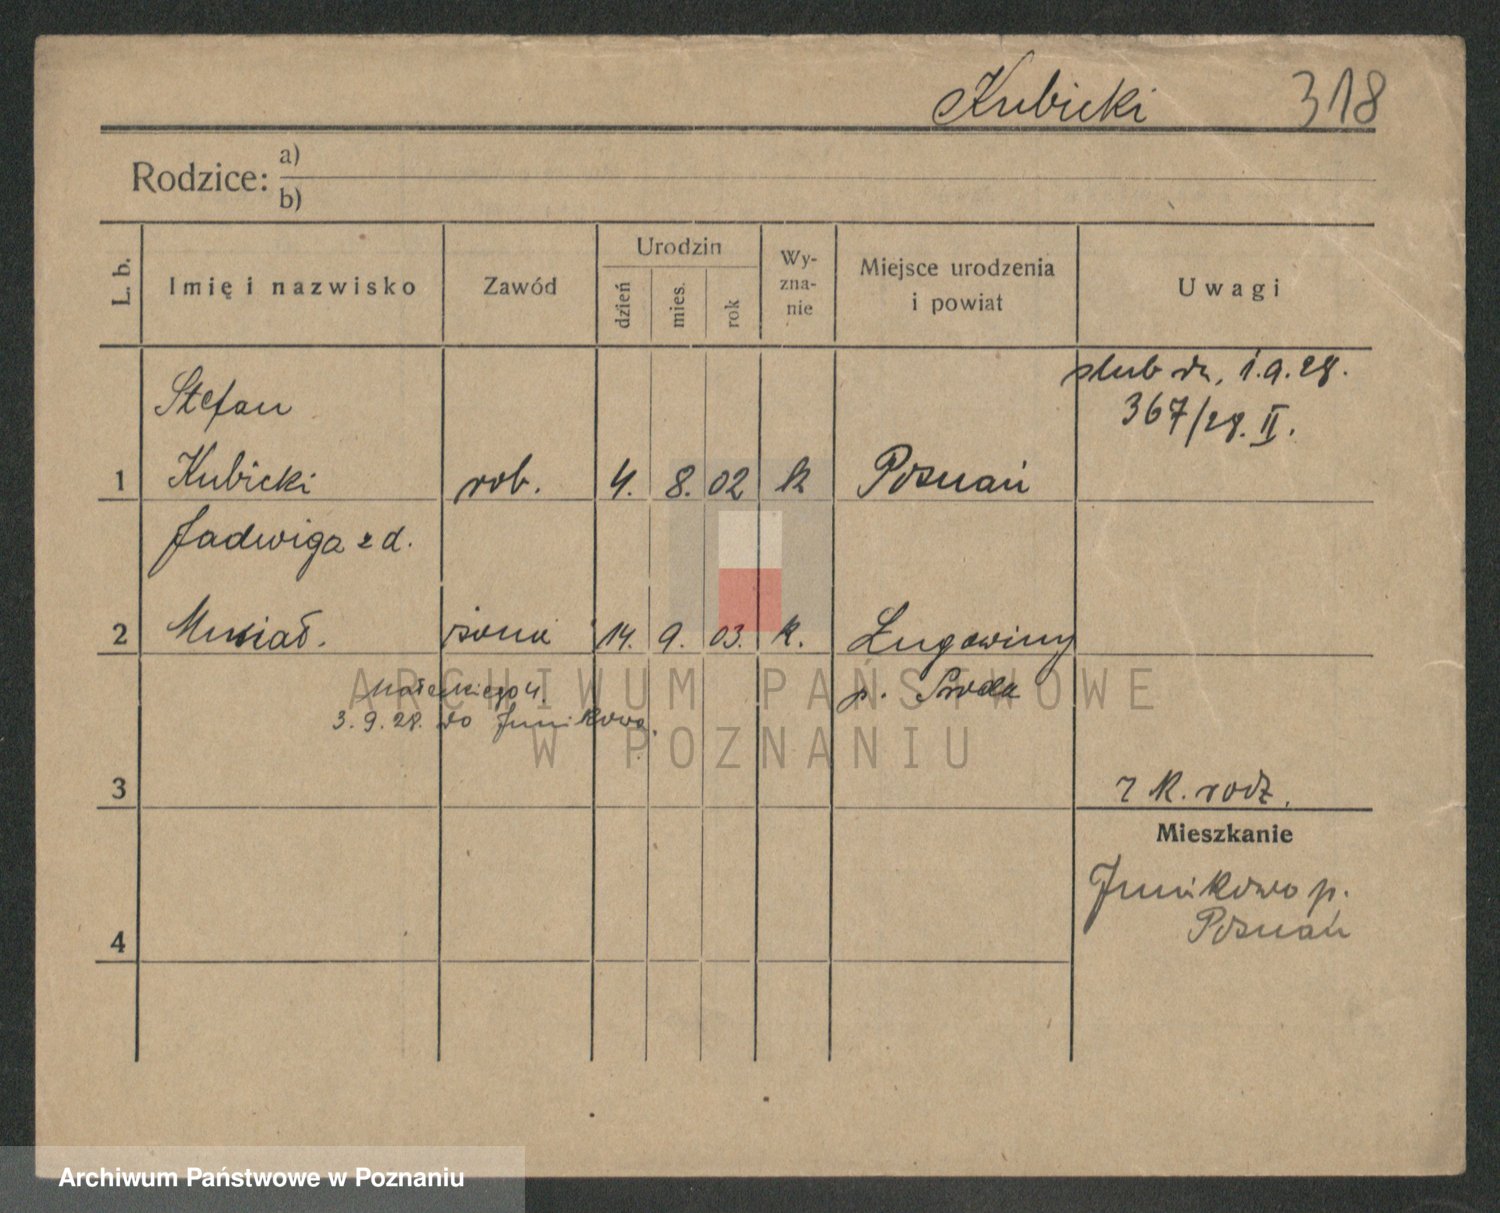 Kubicki 318
Rodzice: a)
b)
L. b. Imię i nazwisko Zawód Urodzin dzień mies. rok Wy-zna-nie Miejsce urodzenia i powiat Uwagi
ślub dn. 1.9.28.
367/28. II.
Stefan
1 Kubicki rob. 4. 8. 02 k Poznań
Jadwiga z d.
2 Musiał. żona 14. 9. 03. k. Ługowiny
p. Środa
Małeckiego 4.
3.9.28. do Junikowa.
3
r k. rodz.
Mieszkanie
Junikowo p.
Poznań
4
ARCHIWUM PAŃSTWOWE
W POZNANIU
Archiwum Państwowe w Poznaniu